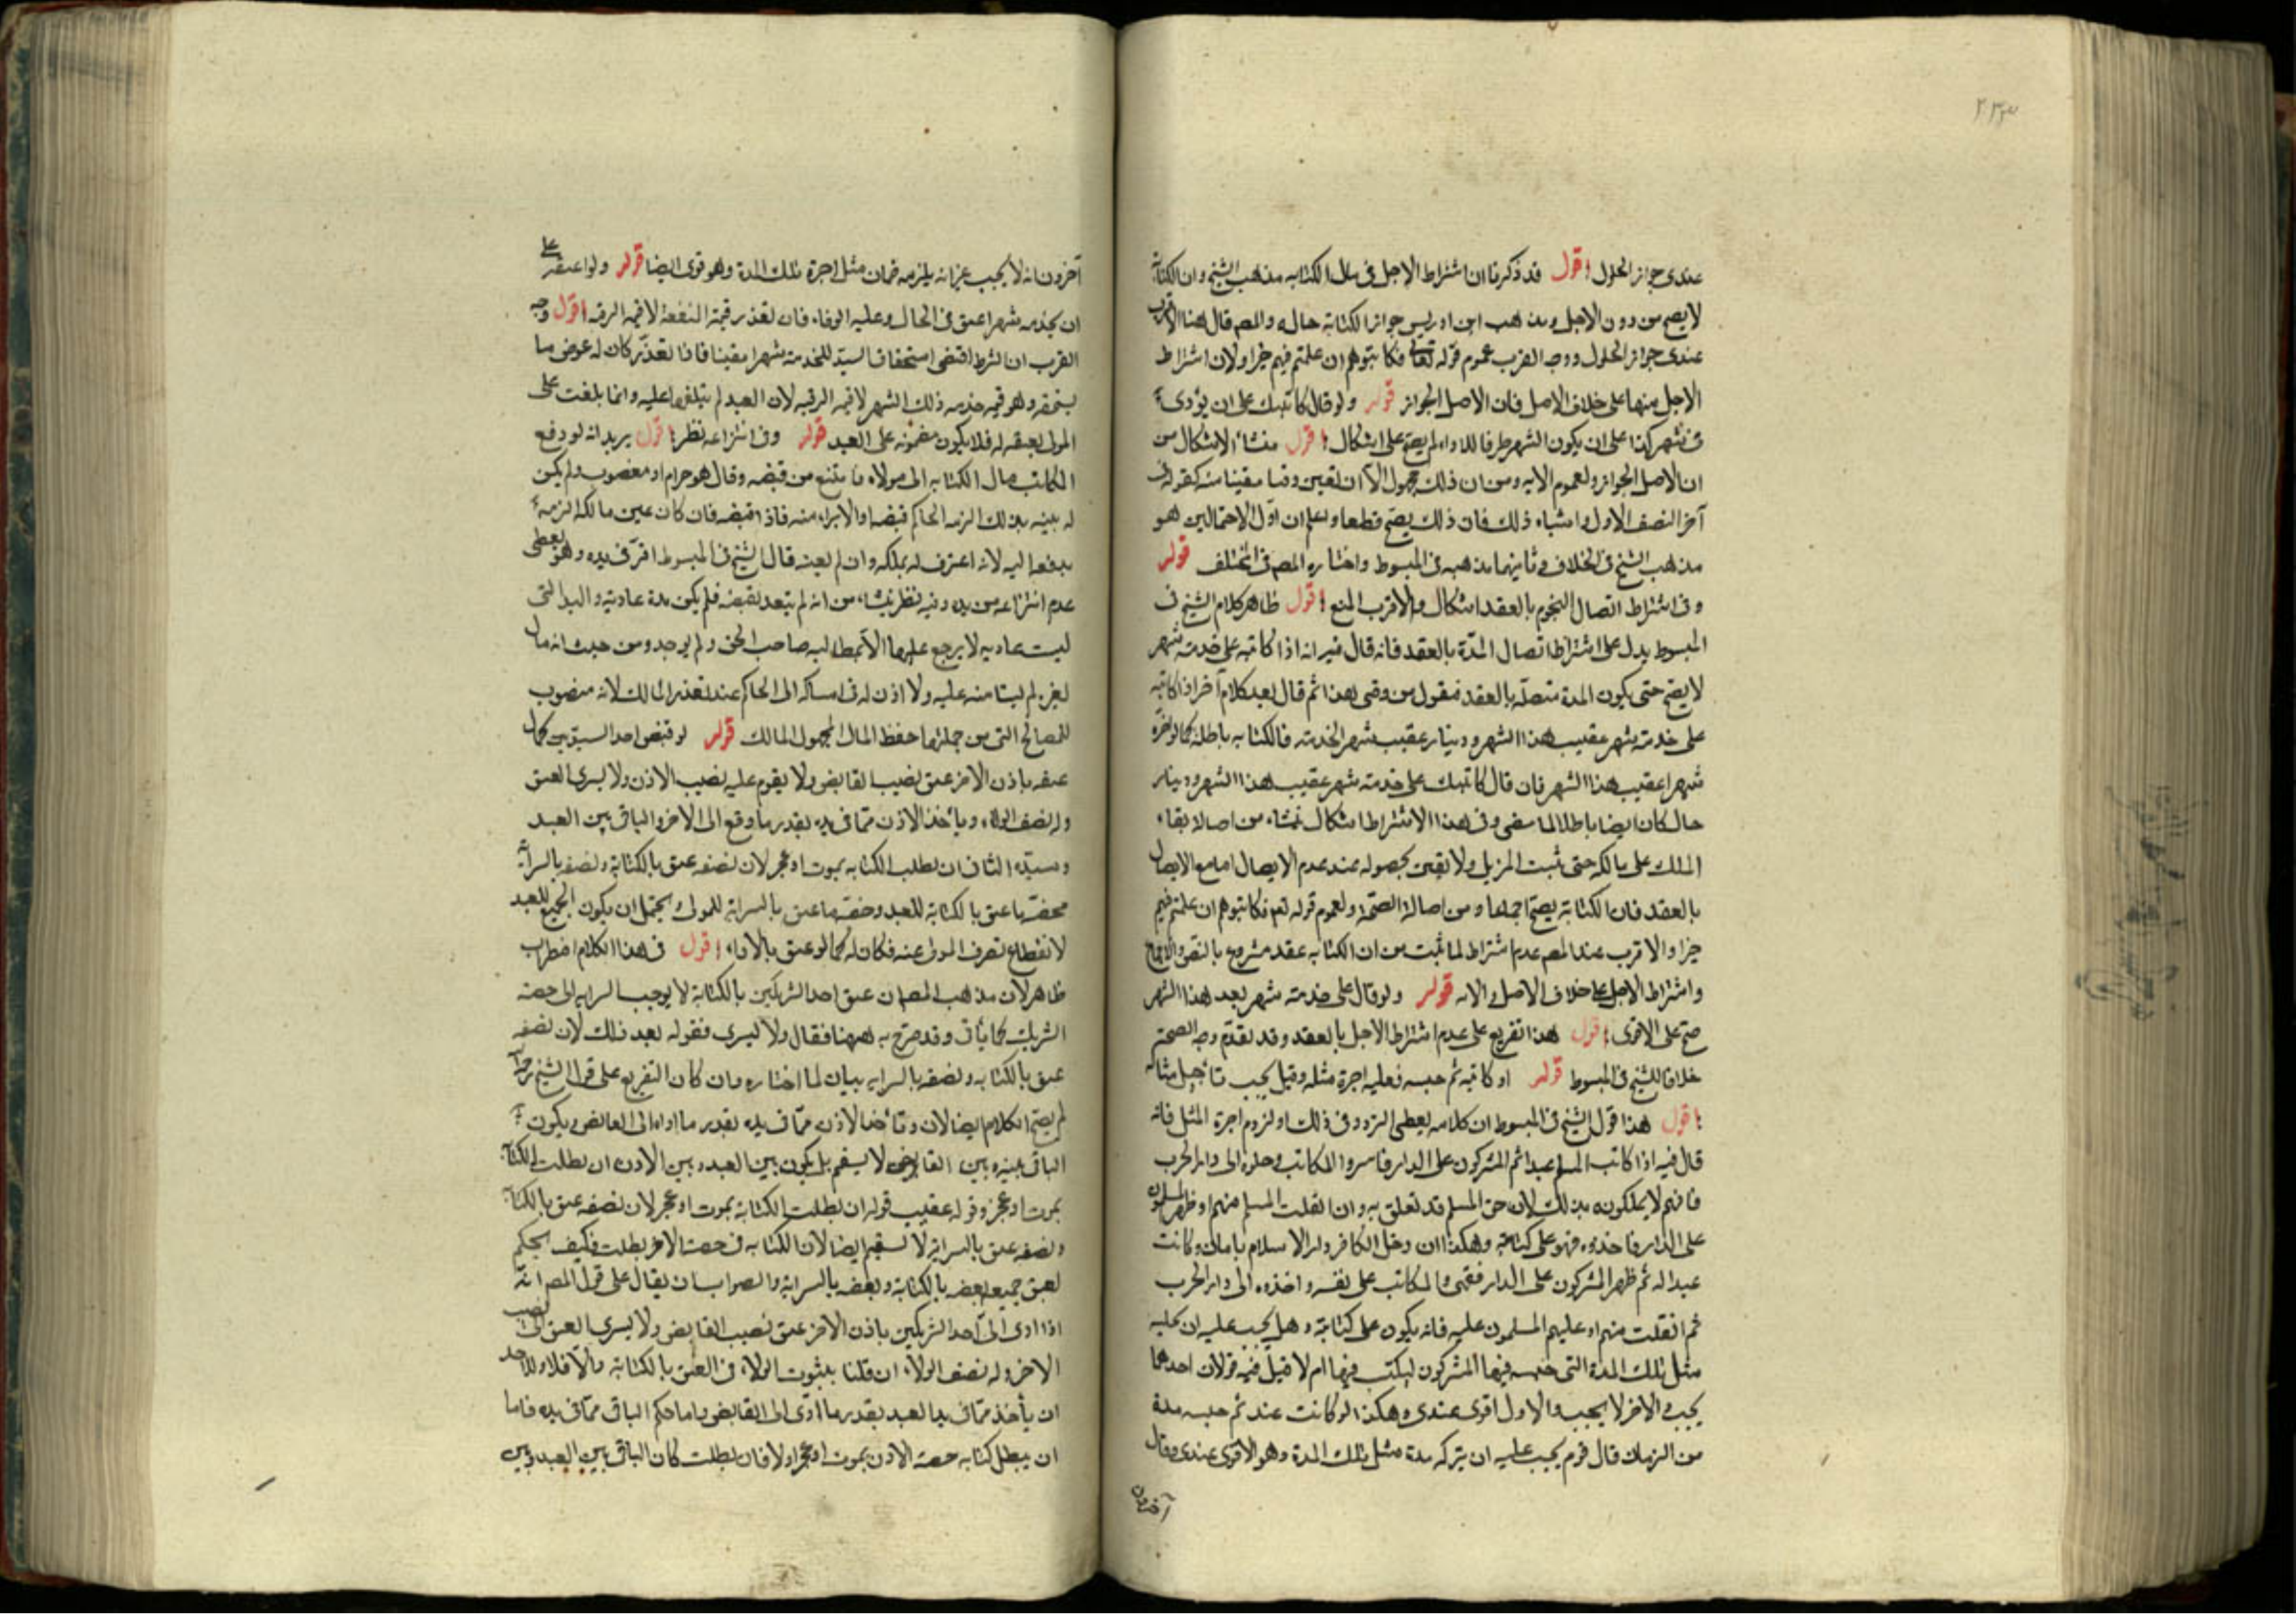 ٢٣٣
عندى جواز الحلول اقول قد ذكرنا ان اشتراط الاجل فى مال الكتابه مذهب الشيخ وان الكتابة
لا يصح من دون الاجل ومذهب ابن ادريس جواز الكتابة حاله والمصم قال هنا الاقرب
عندى جواز الحلول ووجه القرب عموم قوله تعالى فكاتبوهم ان علمتم فيهم خيرا ولان اشتراط
الاجل منها على خلاف الاصل فان الاصل الجواز قوله ولو قال كاتبتك على ان يؤدى
فى شهر كذا على ان يكون الشهر ظرفا للاداء لم يصح على اشكال اقول منشأ الاشكال من
ان الاصل الجواز ولعموم الايه ومن ان ذلك مجهول الا ان تعين وقتا معينا منه كقوله فى
آخر النصف الاول واشباه ذلك فان ذلك يصح قطعا واعلم ان اول الاحتمالين هو
مذهب الشيخ فى الخلاف وثانيهما مذهبه فى المبسوط واختاره المصم فى المختلف قوله
وفى اشتراط اتصال النجوم بالعقد اشكال والاقرب المنع اقول ظاهر كلام الشيخ فى
المبسوط يدل على اشتراط اتصال المدّة بالعقد فانه قال فيه انه اذا كاتبه على خدمته شهر
لا يصح حتى يكون المدة متصلة بالعقد فيقول من وقتى هذا ثم قال بعد كلام آخر اذا كاتبه
على خدمته شهر عقيب هذا الشهر ودينار عقيب شهر الخدمته فالكتابه باطلة كما لو آجره
شهرا عقيب هذا الشهر فان قال كاتبتك على خدمته شهر عقيب هذا الشهر ودينار
حال كان ايضا باطلا لما مضى وفى هذا الاشتراط اشكال ينشاء من اصالة بقاء
الملك على مالكه حتى يثبت المزيل ولا يقين بحصوله عند عدم الايصال اما مع الايصال
بالعقد فان الكتابة يصح اجماعا ومن اصالة الصحّة ولعموم قوله تعم فكاتبوهم ان علمتم فيهم
خيرا والاقرب عند المصم عدم اشتراط لما ثبت من ان الكتابه عقد مشروع بالنص والاجماع
واشتراط الاجل على خلاف الاصل والايه قوله ولو قال على خدمته شهر بعد هذا الشهر
صح على الاقوى اقول هذا تفريع على عدم اشتراط الاجل بالعقد وقد تقدم وجه الصحة
خلافا للشيخ فى المبسوط قوله او كاتبه ثم حبسه فعليه اجرة مثله وقيل يجب تأجيل مثله
اقول هذا قول الشيخ فى المبسوط ان كلامه يعطى التردد فى ذلك او لزوم اجرة المثل فانه
قال فيه اذا كاتب المسلم عبدا ثم المشركون على الدار فاسروا المكاتب وحملوه الى دار الحرب
فانهم لا يملكونه بذلك لان حق المسلم قد تعلق به وان انفلت المسلم منهم او ظهر المسلمون
على الدار فاخذوه فهو على كتابته وهكذا ان دخل الكافر دار الاسلام بامان وكانت
عبدا له ثم ظهر المشركون على الدار فقهروا المكاتب على نفسه واخذوه الى دار الحرب
ثم انفلت منهم او عليهم المسلمون عليه فانه يكون على كتابته وهل يجب عليه ان يخليه
مثل تلك المدة التى حبسه فيها المشركون ليكتسب فيها ام لا قيل فيه قولان احدهما
يجب والاخر لا يجب والاول اقوى عندى وهكذا لو كانت عنده ثم حبسه مدة
من الزمان قال قوم يجب عليه ان يتركه مدة مثل تلك المدة وهو الاقوى عندى وقال
آخرون
آخرون انه لا يجب غير انه يلزمه ضمان مثل اجرة تلك المدة وهو قوى ايضا قوله ولو اعتقه على
ان يخدمه شهرا عتق فى الحال وعليه الوفاء فان تعذر قيمة المنفعة لا قيمة الرقبه اقول وجه
القرب ان الشرط اقتضى استحقاق السيّد للخدمته شهرا معينا فاذا تعذّر كان له عوض ما
يستحقه وهو قيمه خدمه ذلك الشهر لا قيمه الرقبه لان العبد لم يتلفها عليه وانما بلغت على
المولى بعتقه له فلا يكون مضمونه على العبد قوله وفى انتزاعه نظر اقول يريد انه لو دفع
المكاتب مال الكتابه الى مولاه فامتنع من قبضه وقال هو حرام او مغصوب ولم يكن
له بينه بذلك الزمه الحاكم قبضه او الابراء منه فاذا قبضه فان كان عين مالكه الزمه
بدفعه اليه لانه اعترف له بملكه وان لم يعينه قال الشيخ فى المبسوط اقرّ فى يده وهو يعطى
عدم انتزاعه من يده وفيه نظر ينشاء من انه لم يتعد بقبضه فلم يكن يده عادية واليد التى
ليست عاديه لا يرجع عليها الا بمطالبه صاحب الحق ولم يوجد ومن حيث انه مال
لغيره لم يستامنه عليه ولا اذن له فى امساكه الى الحاكم عند تعذر المالك لانه منصوب
للمصالح التى من جملتها حفظ المال المجهول المالك قوله لو قبض احد السيدين كمال
عتقه باذن الاخر عتق نصيب القابض ولا يقوم عليه نصيب الاذن ولا يسرى العتق
وله نصف الولاء ويأخذ الاذن ممّا فى يده بقدر ما دفع الى الاخر والباقى بين العبد
وسيّده الثانى ان بطلت الكتابه بموت او عجز لان نصفه عتق بالكتابة ونصفه بالسراية
فحصّة ما عتق بالكتابة للعبد وحصّة ما عتق بالسراية للمولى ويحتمل ان يكون الجميع للعبد
لانقطاع تصرف المولى عنه فكان له كما لو عتق بالاداء اقول فى هذا الكلام اضطراب
ظاهر لان مذهب المصم ان عتق احد الشريكين بالكتابة لا يوجب السرايه الى حصة
الشريك كما يأتى وقد صرّح به ههنا فقال ولا يسرى فقوله بعد ذلك لان نصفه
عتق بالكتابه ونصفه بالسرايه بيان لما اختاره وان كان التفريع على قول الشيخ
لم يصح الكلام ايضا لان ويأخذ الاذن ممّا فى يده بقدر ما اداه الى القابض ويكون
الباقى بينه بين القابض لا يستقيم بل يكون بين العبد وبين الاذن ان بطلت الكتابة
بموت او عجز وقوله عقيب قوله ان بطلت الكتابة بموت او عجز لان نصفه عتق بالكتابة
ونصفه عتق بالسراية لا يستقيم ايضا لان الكتابه فى حصة الاخر بطلت فكيف يحكم
بعتق جميعه بعضه بالكتابة وبعضه بالسراية والصواب ان يقال على قول المصم انه
اذا ادى الى احد الشريكين باذن الاخر عتق نصيب القابض ولا يسرى العتق الى نصيب
الاخر وله نصف الولاء ان قلنا بثبوت الولاء فى العتق بالكتابة والا فلا ولاء لاحد
ان يأخذ ممّا فى يد العبد بقدر ما ادّى الى القابض واما حكم الباقى ممّا فى يده فاما
ان يبطل كتابه حصة الاذن بموت او عجز اولا فان بطلت كان الباقى بين العبد وبين